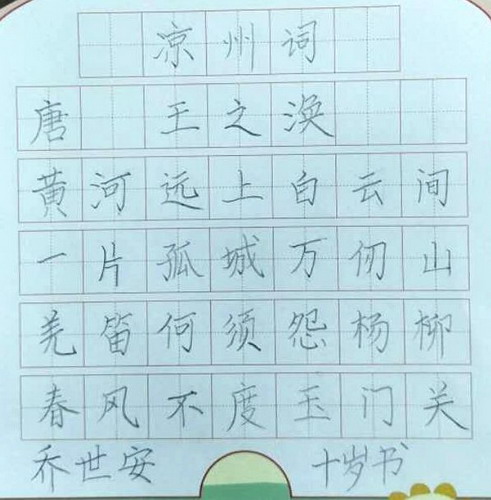 凉州词
唐 王之涣
黄河远上白云间
一片孤城万仞山
羌笛何须怨杨柳
春风不度玉门关
乔世安 十岁书